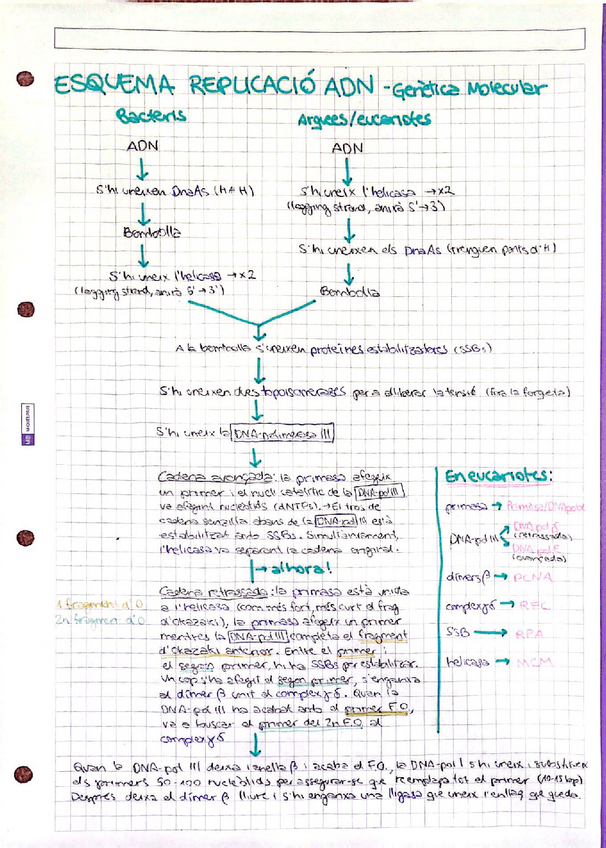 ESQUEMA REPLICACIÓ ADN - Genètica Molecular
Bacteris
ADN
S'hi uneixen DnaAs (H+H)
Bombolla
S'hi uneix l'helicasa → x2
(lagging strand, anirà 5'→3')
Arquees/eucariotes
ADN
S'hi uneix l'helicasa → x2
(lagging strand, anirà 5'→3')
S'hi uneixen els DnaAs (trenquen ponts d'H)
Bombolla
A la bombolla s'uneixen proteïnes estabilitzadores (SSBs)
S'hi uneixen dues topoisomerases per a alliberar la tensió (fira la forqueta)
S'hi uneix la DNA-polimerasa III
Cadena avançada: la primasa afegeix
un primer i el nucli catalític de la DNA-pol III
va afegint nucleòtids (dNTPs). → El tros de
cadena senzilla abans de la DNA-pol III està
estabilitzat amb SSBs. Simultàniament,
l'helicasa va separant la cadena original.
→ alhora!
1 fragment d'O.
2n fragment d'O.
Cadena retrassada: la primasa està unida
a l'helicasa (com més fort, més curt el frag
d'Okazaki), la primasa afegeix un primer
mentres la DNA-pol III completa el fragment
d'Okazaki anterior. Entre el primer i
el segon primer, hi ha SSBs per estabilitzar.
Un cop s'ha afegit el segon primer, s'enganxa
al dímer β unit al complex γδ. Quan la
DNA-pol III ha acabat amb el primer F.O,
va a buscar el primer del 2n F.O, al
complex γδ
En eucariotes:
primasa → Primasa/DNApolα
DNA-pol III
DNA-pol δ
(retrassada)
DNA-pol ε
(avançada)
dímers β → PCNA
complex γδ → RFC
SSB → RPA
helicasa → MCM
Quan la DNA-pol III deixa l'anella β i acaba el F.O., la DNA-pol I s'hi uneix i substitueix
els primers 50-100 nucleòtids per assegurar-se que reemplaça tot el primer (10-15 bp)
Després deixa el dímer β lliure i s'hi enganxa una lligasa que uneix l'enllaç que queda.